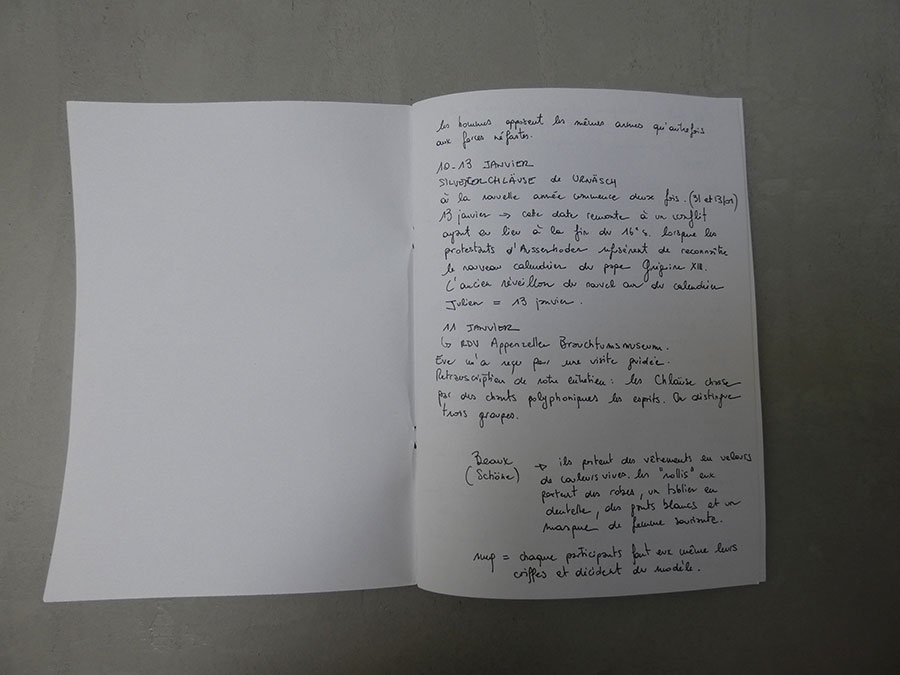 les hommes opposent les mêmes armes qu'autrefois
aux forces néfastes.
10-13 JANVIER
SILVESTERCHLÄUSE de URNÄSCH
à la nouvelle année commence deux fois. (31 et 13/01)
13 janvier → cette date remonte à un conflit
ayant eu lieu à la fin du 16e s. lorsque les
protestants d'Ausserrhoden refusèrent de reconnaître
le nouveau calendrier du pape Grégoire XIII.
L'ancien réveillon du nouvel an du calendrier
Julien = 13 janvier.
11 JANVIER
↳ RDV Appenzeller Brauchtumsmuseum.
m'a reçu pour une visite guidée.
Retranscription de notre entretien : les Chläuse chasse
par des chants polyphoniques les esprits. On distingue
trois groupes.
Beaux
(Schöne)
▷ ils portent des vêtements en velours
de couleurs vives. les "rollis" eux
portent des robes, un tablier en
dentelle, des gants blancs et un
masque de femme souriante.
= chaque participants font eux même leurs
coiffes et décident du modèle.